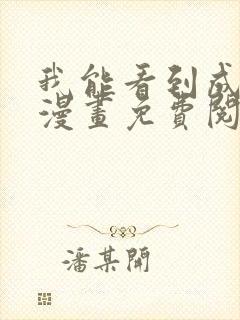 我能看到成
漫畫免費閱
潘某開